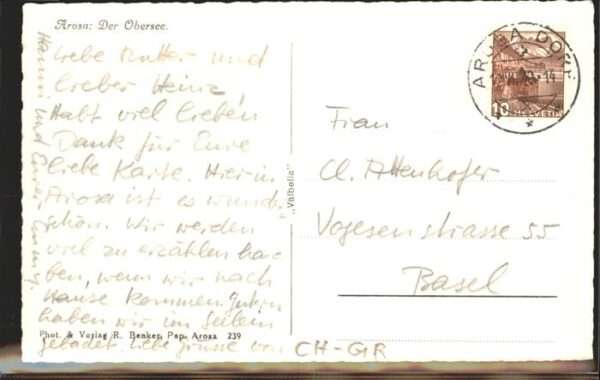 Arosa: Der Obersee.
Liebe Mutter und
lieber Heinz,
Habt viel lieben
Dank für Eure
liebe Karte. Hier in
Arosa ist es wunder
schön. Wir werden
viel zu erzählen ha-
ben, wenn wir nach
Hause kommen. Gestern
haben wir im See
gebadet. Liebe Grüsse von
Hanni und Euer
Phot. & Verlag R. Benker, Pap. Arosa 239
"Valbella"
AROSA DORF
10
HELVETIA
Frau
Cl. Attenhofer
Vogesenstrasse 55
Basel
CH-GR